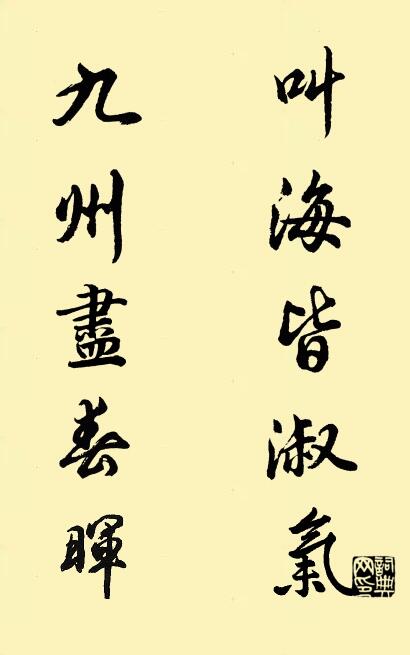 叫海皆淑氣
九州盡春暉
詞典
网印